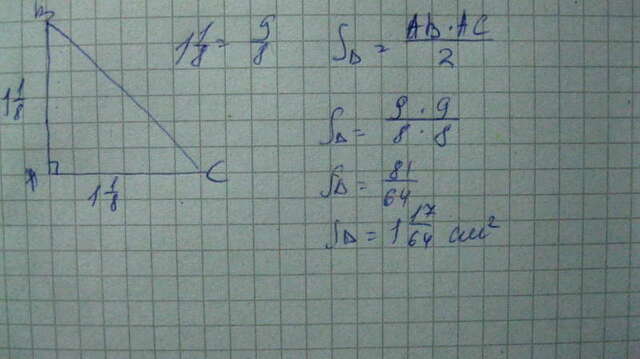 B
1 1/8
A
C
1 1/8
1 1/8 = 9/8
S△ = AB · AC / 2
S△ = 9 · 9 / 8 · 8
S△ = 81/64
S△ = 1 17/64 см²